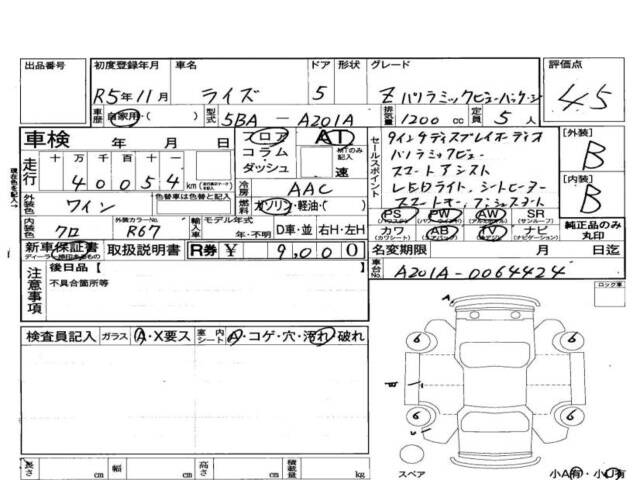 出品番号 初度登録年月 車名 ドア 形状 グレード 評価点
R5年11月 ライズ 5 Z パノラミックビューパッケージ 4.5
車歴 自家用・( ) 型式 5BA-A201A 排気量 1200cc 定員 5人
車検 年 月 日 フロア AT
コラム ATのみ記入
ダッシュ 速
セールスポイント
9インチディスプレイオーディオ
パノラミックビュー
スマートアシスト
LEDライト、シートヒーター
スマートキー、プッシュスタート
[外装] B
[内装] B
走行 十 万 千 百 十 一
40054 km
現在色を記入→
外装色 ワイン 色替車は色替と記入
冷房 AAC
燃料 ガソリン・軽油・( )
内装色 クロ 外装カラーNo. R67 輸入車 モデル年式 年・不明 D車・並 右H・左H
PS PW AW SR
(パワステ) (パワーウィンド) (アルミホイル) (サンルーフ)
カワ AB TV ナビ
(カワシート) (エアバッグ) (テレビ) (ナビゲーション)
純正品のみ丸印
新車保証書 取扱説明書 R券 ¥ 9,000
名変期限 月 日迄
車台No. A201A-0064424
注意事項
後日品 [ ]
不具合箇所等
ロック車
検査員記入 ガラス A・X要ス 室内シート A・コゲ・穴・汚れ・破れ
A
6 6
6 6
U
スペア 小A有・小U有
長さ cm 幅 cm 高さ cm 積載量 kg